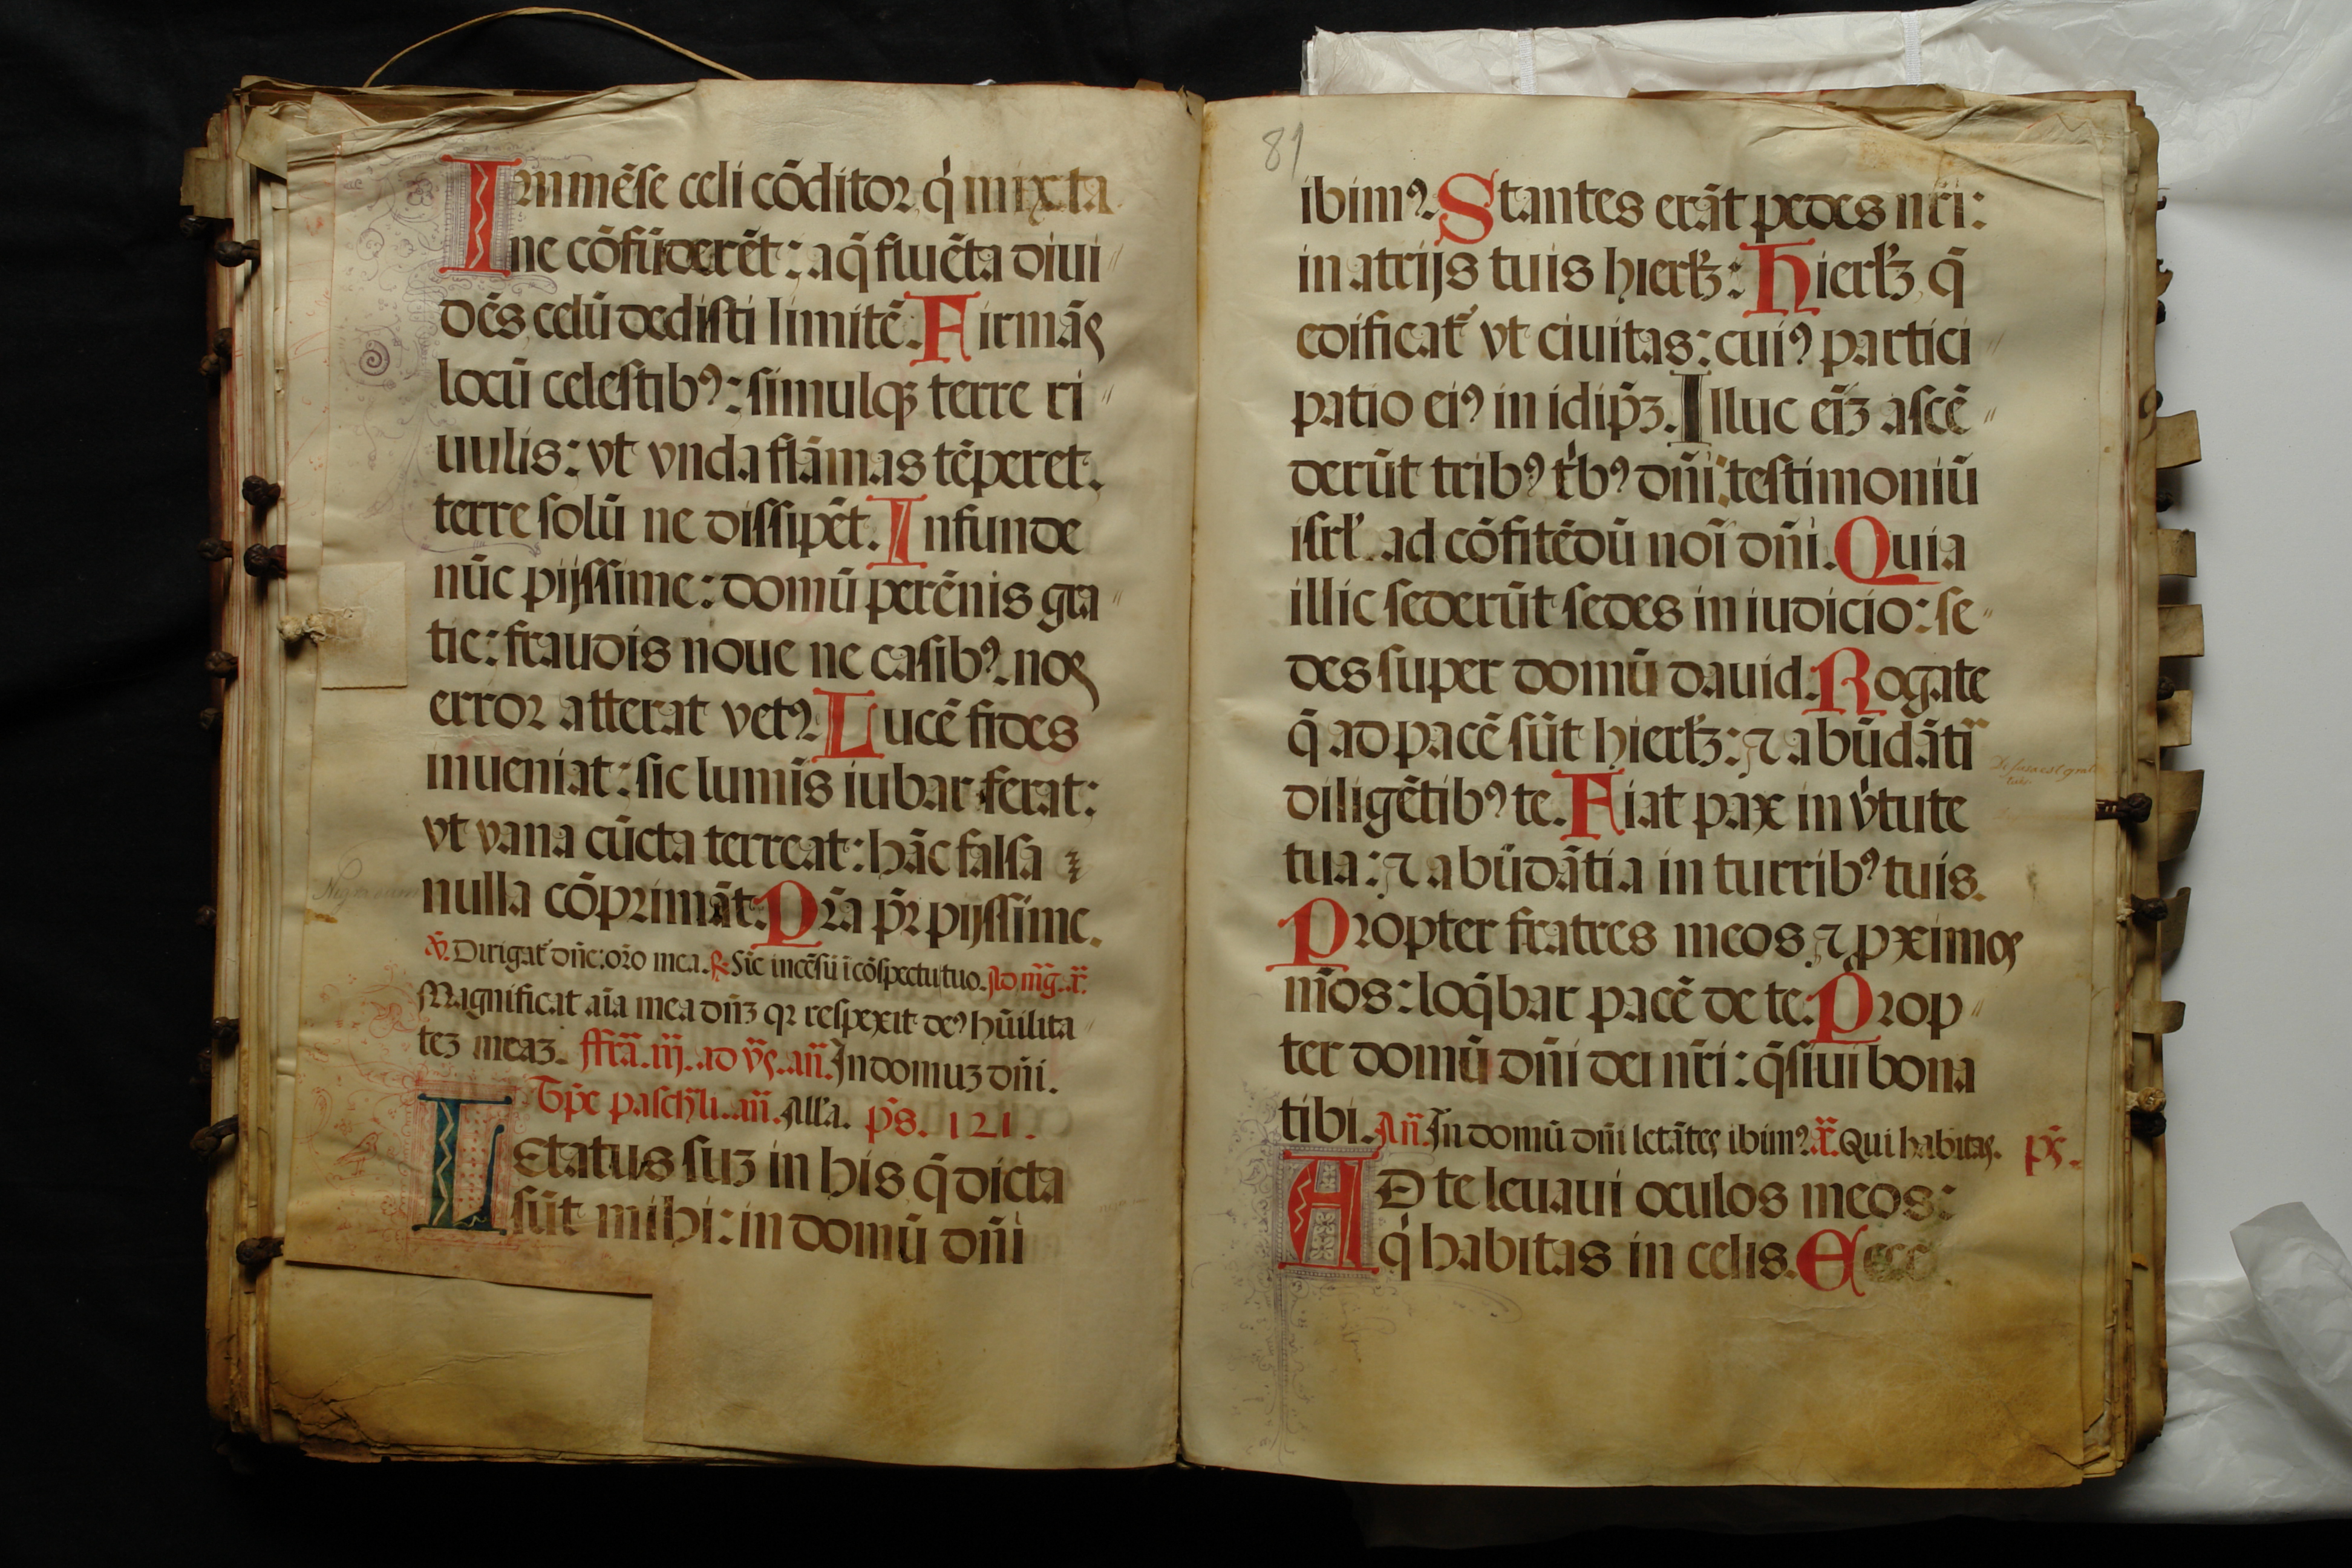 Immēse celi cōditor q̇ mixta
ne cōfūderēt: aq̄ fluēta diui〃
dēs celū dedisti limitē. Firmās
locū celestibꝰ: simulqꝫ terre ri〃
uulis: vt vnda flāmas tēperet.
terre solū ne dissipēt. Infunde
nūc pijssime: domū perēnis gra〃
tie: fraudis noue ne casibꝰ. nos
error atterat vetꝰ. Lucē fides
inueniat: sic lumīs iubar ferat:
vt vana cūcta terreat: hāc falsa
nulla cōprimāt. Pr̄a pr̄ pijssime.
℣. Dirigat᷑ dn̄e: or̄o mea. ℟. Sic incēsū ī cōspectu tuo. Ad mḡ. an̄.
Magnificat aīa mea dn̄ꝫ qꝛ respexit deꝰ hūilita〃
teꝫ meaꝫ. ffr̄a. iij. ad vs̄. an̄. In domuꝫ dn̄i.
Tp̄e pasch̄li. an̄. All'a. ps̄. 121.
Letatus suꝫ in his q̄ dicta
sūt mihi: in domū dn̄i
81
ibimꝰ. Stantes erāt pedes nr̄i:
in atrijs tuis hierlꝫ: Hierlꝫ q̄
edificat᷑ vt ciuitas: cuiꝰ partici〃
patio eiꝰ in idip̄ꝫ. Illuc eīꝫ ascē〃
derūt tribꝰ t'bꝰ dn̄i: testimoniū
isrl'. ad cōfitēdū noī dn̄i. Quia
illic sederūt sedes in iudicio: se〃
des super domū dauid. Rogate
q̄ ad pacē sūt hierlꝫ: ⁊ abūdāti
diligētibꝰ te. Fiat pax in v̇tute
tua: ⁊ abūdātia in turribꝰ tuis.
Propter fratres meos ⁊ ꝓximos
m̄os: loq̄bar pacē de te. Prop〃
ter domū dn̄i dei nr̄i: q̄siui bona
tibi. An̄. In domū dn̄i letātes ibimꝰ. an̄. Qui habitas. ps̄.
AD te leuaui oculos meos:
q̇ habitas in celis. Ecce